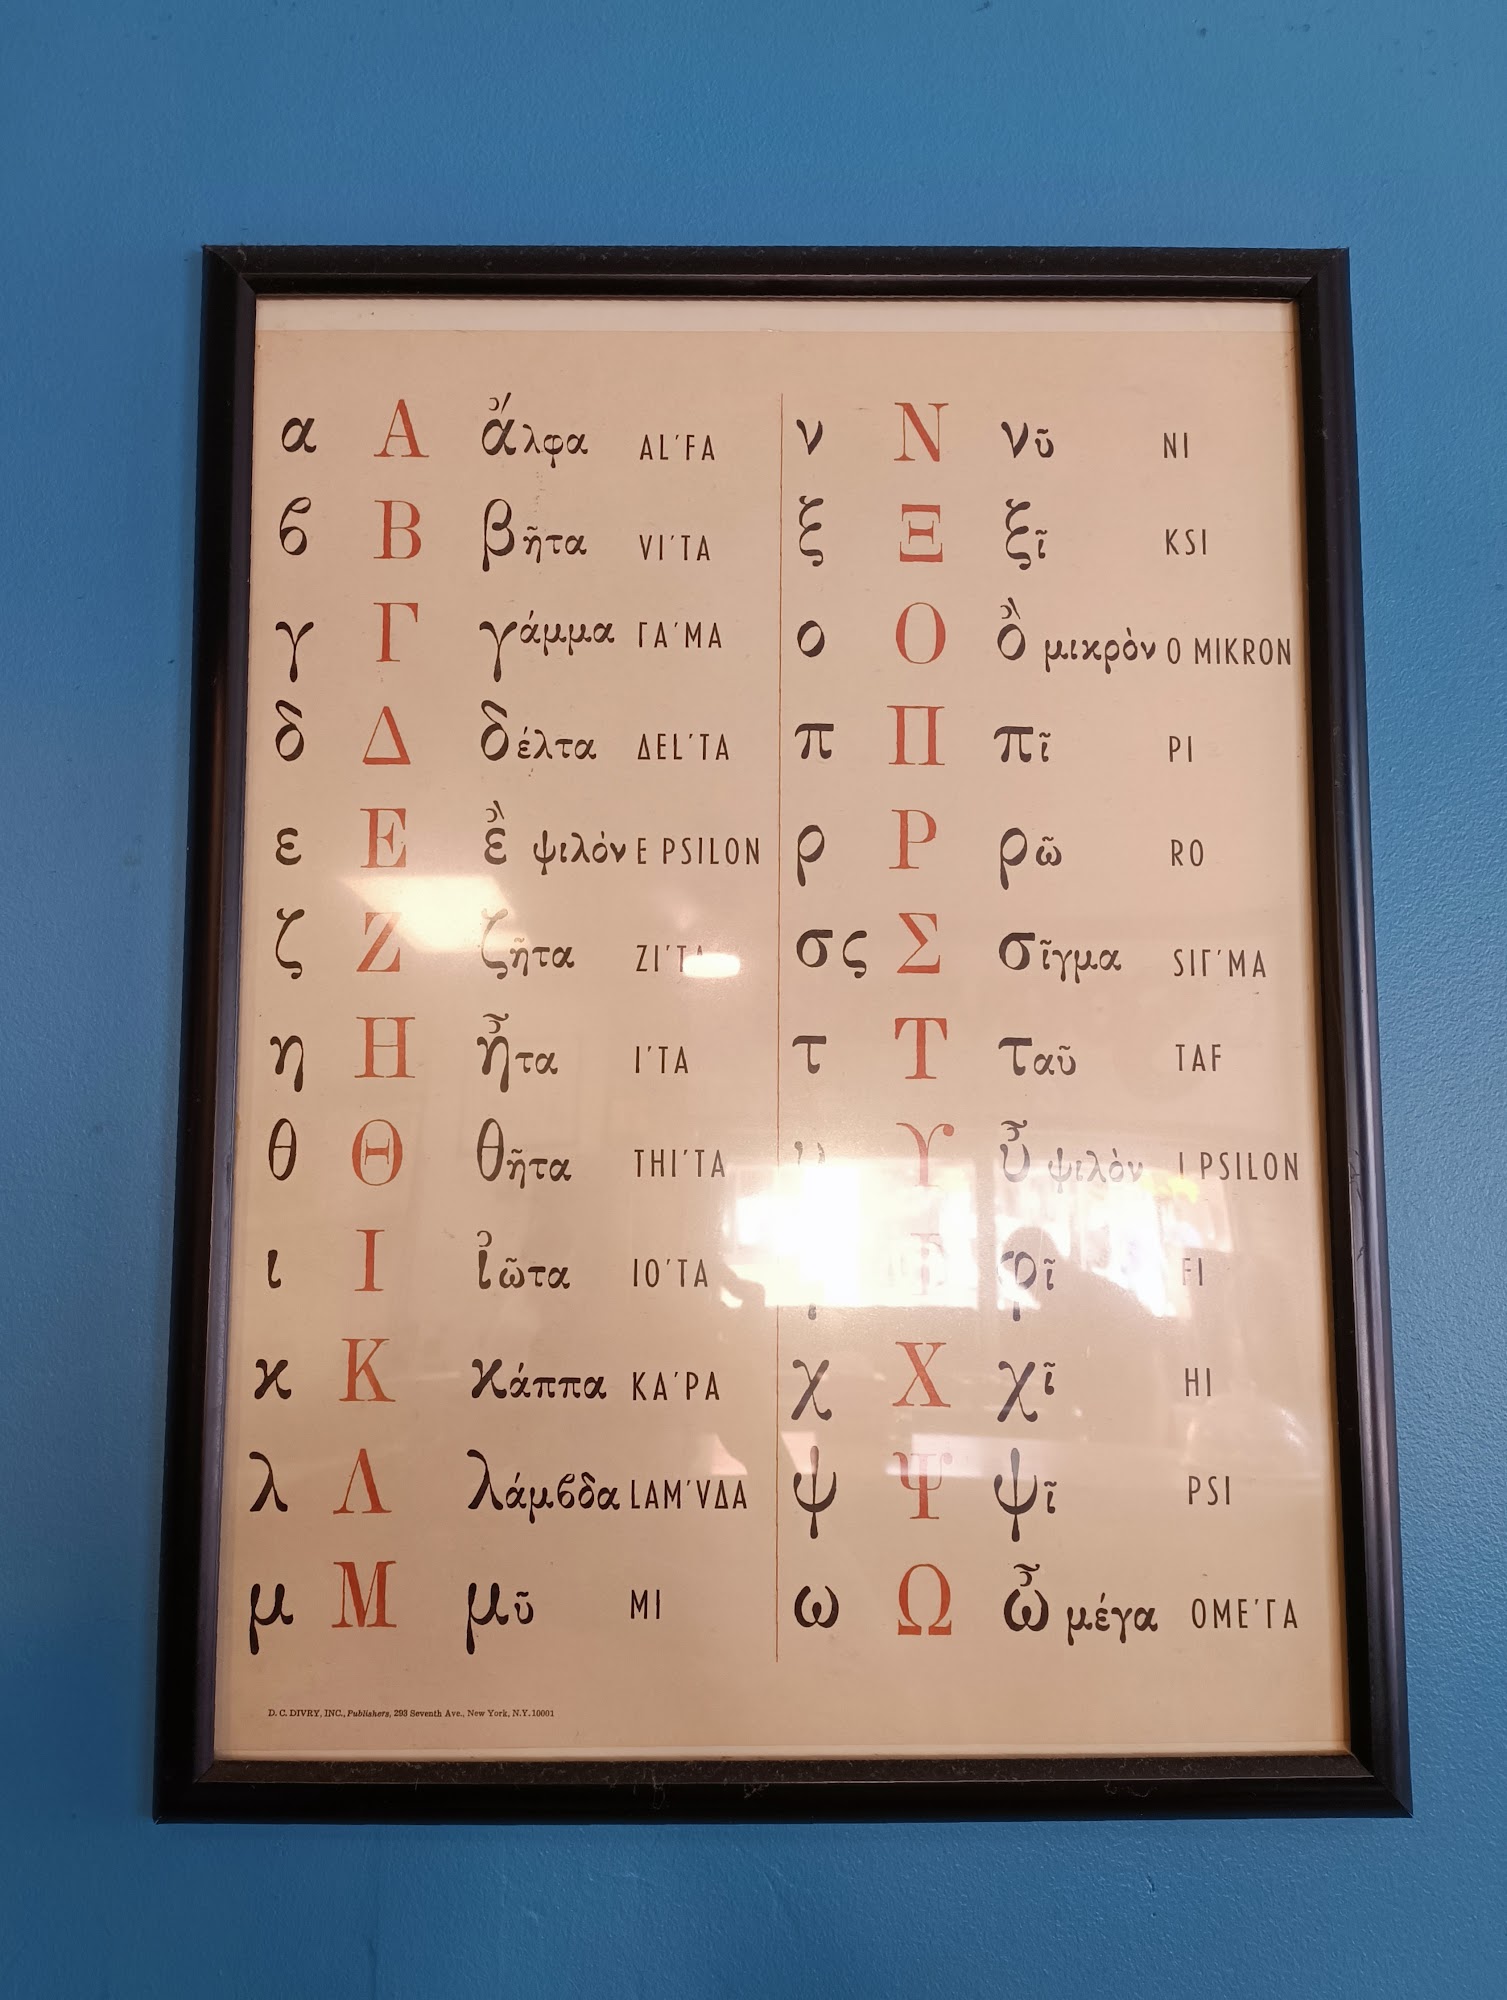 α Α ἄλφα AL´FA
ϐ Β βῆτα VI´TA
γ Γ γάμμα ΓA´MA
δ Δ δέλτα ΔEL´TA
ε Ε ἒ ψιλόν E PSILON
ζ Ζ ζῆτα
η Η ἦτα I´TA
θ Θ θῆτα THI´TA
ι Ι ἰῶτα IO´TA
κ Κ κάππα KA´PA
λ Λ λάμϐδα LAM´VΔA
μ Μ μῦ MI
ν Ν νῦ NI
ξ Ξ ξῖ KSI
ο Ο ὂ μικρὸν O MIKRON
π Π πῖ PI
ρ Ρ ρῶ RO
σ ς Σ σῖγμα SIΓ´MA
τ Τ ταῦ TAF
Υ ὖ ψιλὸν I PSILON
φῖ FI
χ Χ χῖ HI
ψ Ψ ψῖ PSI
ω Ω ὦ μέγα OME´ΓA
D. C. DIVRY, INC., Publishers, 293 Seventh Ave., New York, N.Y. 10001